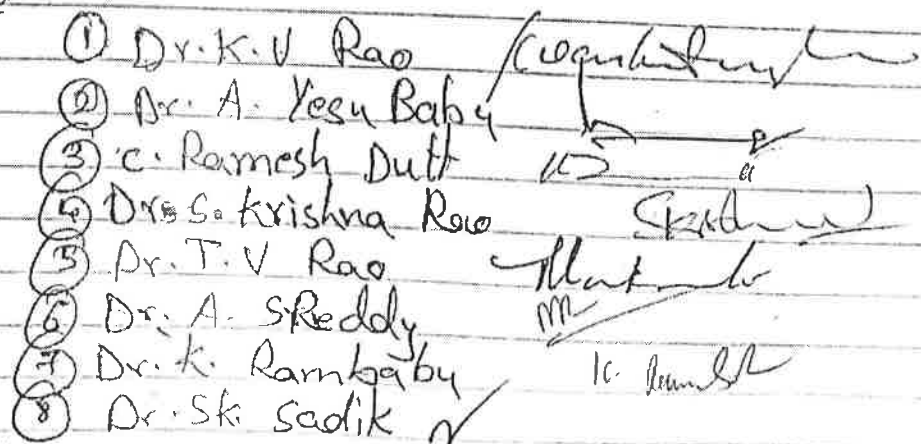 ① Dr. K. V Rao
② Dr. A. Yesu Babu
③ C. Ramesh Dutt
④ Dr. S. Krishna Rao
⑤ Dr. T. V Rao
⑥ Dr. A. S Reddy
⑦ Dr. K. Rambabu K.
⑧ Dr. Sk. Sadik